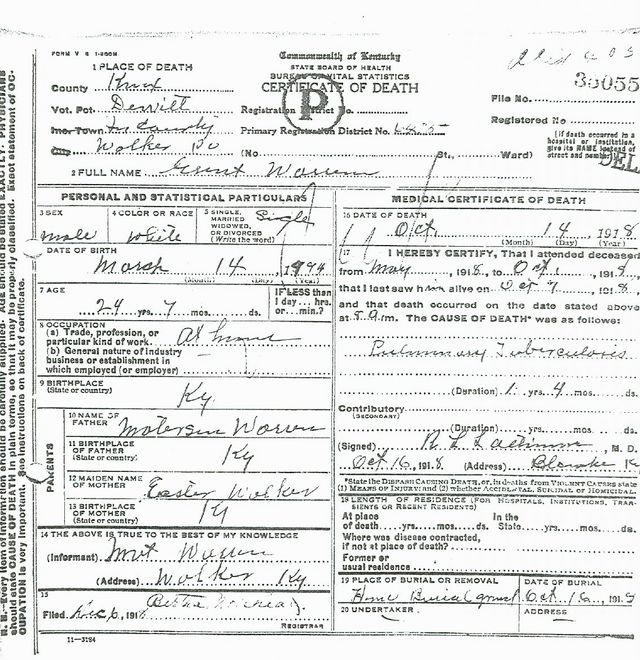 FORM V S 1-200M
Commonwealth of Kentucky
STATE BOARD OF HEALTH
BUREAU OF VITAL STATISTICS
CERTIFICATE OF DEATH
P
1 PLACE OF DEATH
County Knox
Vot. Pct. Derritt
Inc. Town In County
City Walker Ky
File No. 35055
Registered No
Registration District No.
Primary Registration District No.
(No St., Ward)
[If death occurred in a hospital or institution, give its NAME instead of street and number]
DEL
2 FULL NAME Warren
PERSONAL AND STATISTICAL PARTICULARS
3 SEX male
4 COLOR OR RACE White
5 SINGLE, MARRIED WIDOWED, OR DIVORCED (Write the word) Single
DATE OF BIRTH
March 14
(Month) (Day) (Year)
7 AGE
24 yrs. 7 mos. ds.
IF LESS than 1 day... hrs. or... min.?
8 OCCUPATION
(a) Trade, profession, or particular kind of work. At home
(b) General nature of industry business or establishment in which employed (or employer)
9 BIRTHPLACE
(State or country) Ky
PARENTS
10 NAME OF FATHER Warren
11 BIRTHPLACE OF FATHER (State or country) Ky
12 MAIDEN NAME OF MOTHER Easter Walker
13 BIRTHPLACE OF MOTHER (State or country) Ky
14 THE ABOVE IS TRUE TO THE BEST OF MY KNOWLEDGE
(Informant) Warren
(Address) Walker Ky
15
Filed Dec 6, 1918
REGISTRAR
11-3184
MEDICAL CERTIFICATE OF DEATH
16 DATE OF DEATH
Oct. 14 1918
(Month) (Day) (Year)
17 I HEREBY CERTIFY, That I attended deceased
from May, 1918, to Oct, 1918,
that I last saw him alive on Oct 7, 1918,
and that death occurred on the date stated above
at 5 a m. The CAUSE OF DEATH* was as follows:
Pulmonary Tuberculosis
(Duration) 1 yrs. 4 mos. ds.
Contributory
(SECONDARY)
(Duration) yrs. mos. ds.
(Signed) M. D.
Oct 16, 1918 (Address)
*State the DISEASE CAUSING DEATH, or, in deaths from VIOLENT CAUSES state
(1) MEANS OF INJURY; and (2) whether ACCIDENTAL, SUICIDAL or HOMICIDAL.
18 LENGTH OF RESIDENCE (FOR HOSPITALS, INSTITUTIONS, TRANSIENTS OR RECENT RESIDENTS)
At place of death yrs. mos. ds. In the State yrs. mos. ds.
Where was disease contracted, if not at place of death?
Former or usual residence
19 PLACE OF BURIAL OR REMOVAL
Home Burial ground
DATE OF BURIAL
Oct 16, 1918
20 UNDERTAKER
ADDRESS
N. B.—Every item of information should be carefully supplied. AGE should be stated EXACTLY. PHYSICIANS
should state CAUSE OF DEATH in plain terms, so that it may be properly classified. Exact statement of OC-
CUPATION is very important. See instructions on back of certificate.